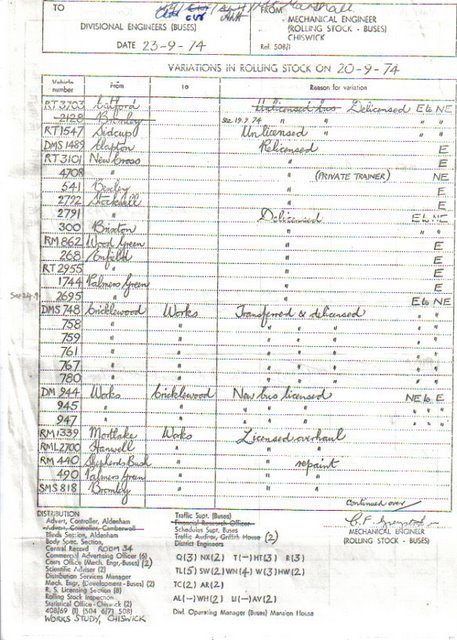 TO
FROM
DIVISIONAL ENGINEERS (BUSES)
MECHANICAL ENGINEER
(ROLLING STOCK - BUSES)
CHISWICK
DATE 23-9-74
Ref. 508/1
VARIATIONS IN ROLLING STOCK ON 20-9-74
Vehicle number From To Reason for variation
RT3703 Catford Unlicensed bus Delicensed E to NE
2128 Bromley See 19.9.74 " " " "
RT1547 Sidcup Unlicensed "
DMS1489 Clapton Relicensed E
RT3101 New Cross " E
4708 " " (PRIVATE TRAINER) NE
541 Bexley " E
2792 Stockwell " E
2791 " Delicensed E to NE
300 Brixton " " "
RM862 Wood Green " E
268 Enfield " E
RT2955 " " E
1744 Palmers Green " E
2695 " " E to NE
DMS748 Cricklewood Works Transferred & delicensed " "
758 " " " " " "
759 " " " " " "
761 " " " " " "
767 " " " " " "
780 " " " " " "
DM944 Works Cricklewood New bus licensed NE to E
945 " " " " " " " "
947 " " " " " " " "
RM1339 Mortlake Works Licensed overhaul
RML2700 Hanwell " " "
RM440 Shepherds Bush " " repaint
490 Palmers Green " " "
SMS818 Bromley " " "
Continued over
DISTRIBUTION
Advert. Controller, Aldenham
Advert. Controller, Camberwell
Blinds Section, Aldenham
Body Spec. Section
Central Record ROOM 34
Commercial Advertising Officer (6)
Costs Office (Mech. Engr.-Buses) (2)
Scientific Adviser (2)
Distribution Services Manager
Mech. Engr. (Development - Buses) (2)
R. S. Licensing Section (8)
Rolling Stock Inspection
Statistical Office - Chiswick (2)
408/69 (1) 504 6/71 508)
WORKS STUDY, CHISWICK
Traffic Supt. (Buses)
Financial Research Officer
Schedules Supt. (Buses)
Traffic Auditor, Griffith House (2)
District Engineers
Q(3) NX(2) T(-) HT(3) R(3)
TL(5) SW(2) WN(4) W(3) HW(2)
TC(2) AR(2)
AL(-) WH(2) U(-) AV(2)
Divl. Operating Manager (Buses) Mansion House
MECHANICAL ENGINEER
(ROLLING STOCK - BUSES)